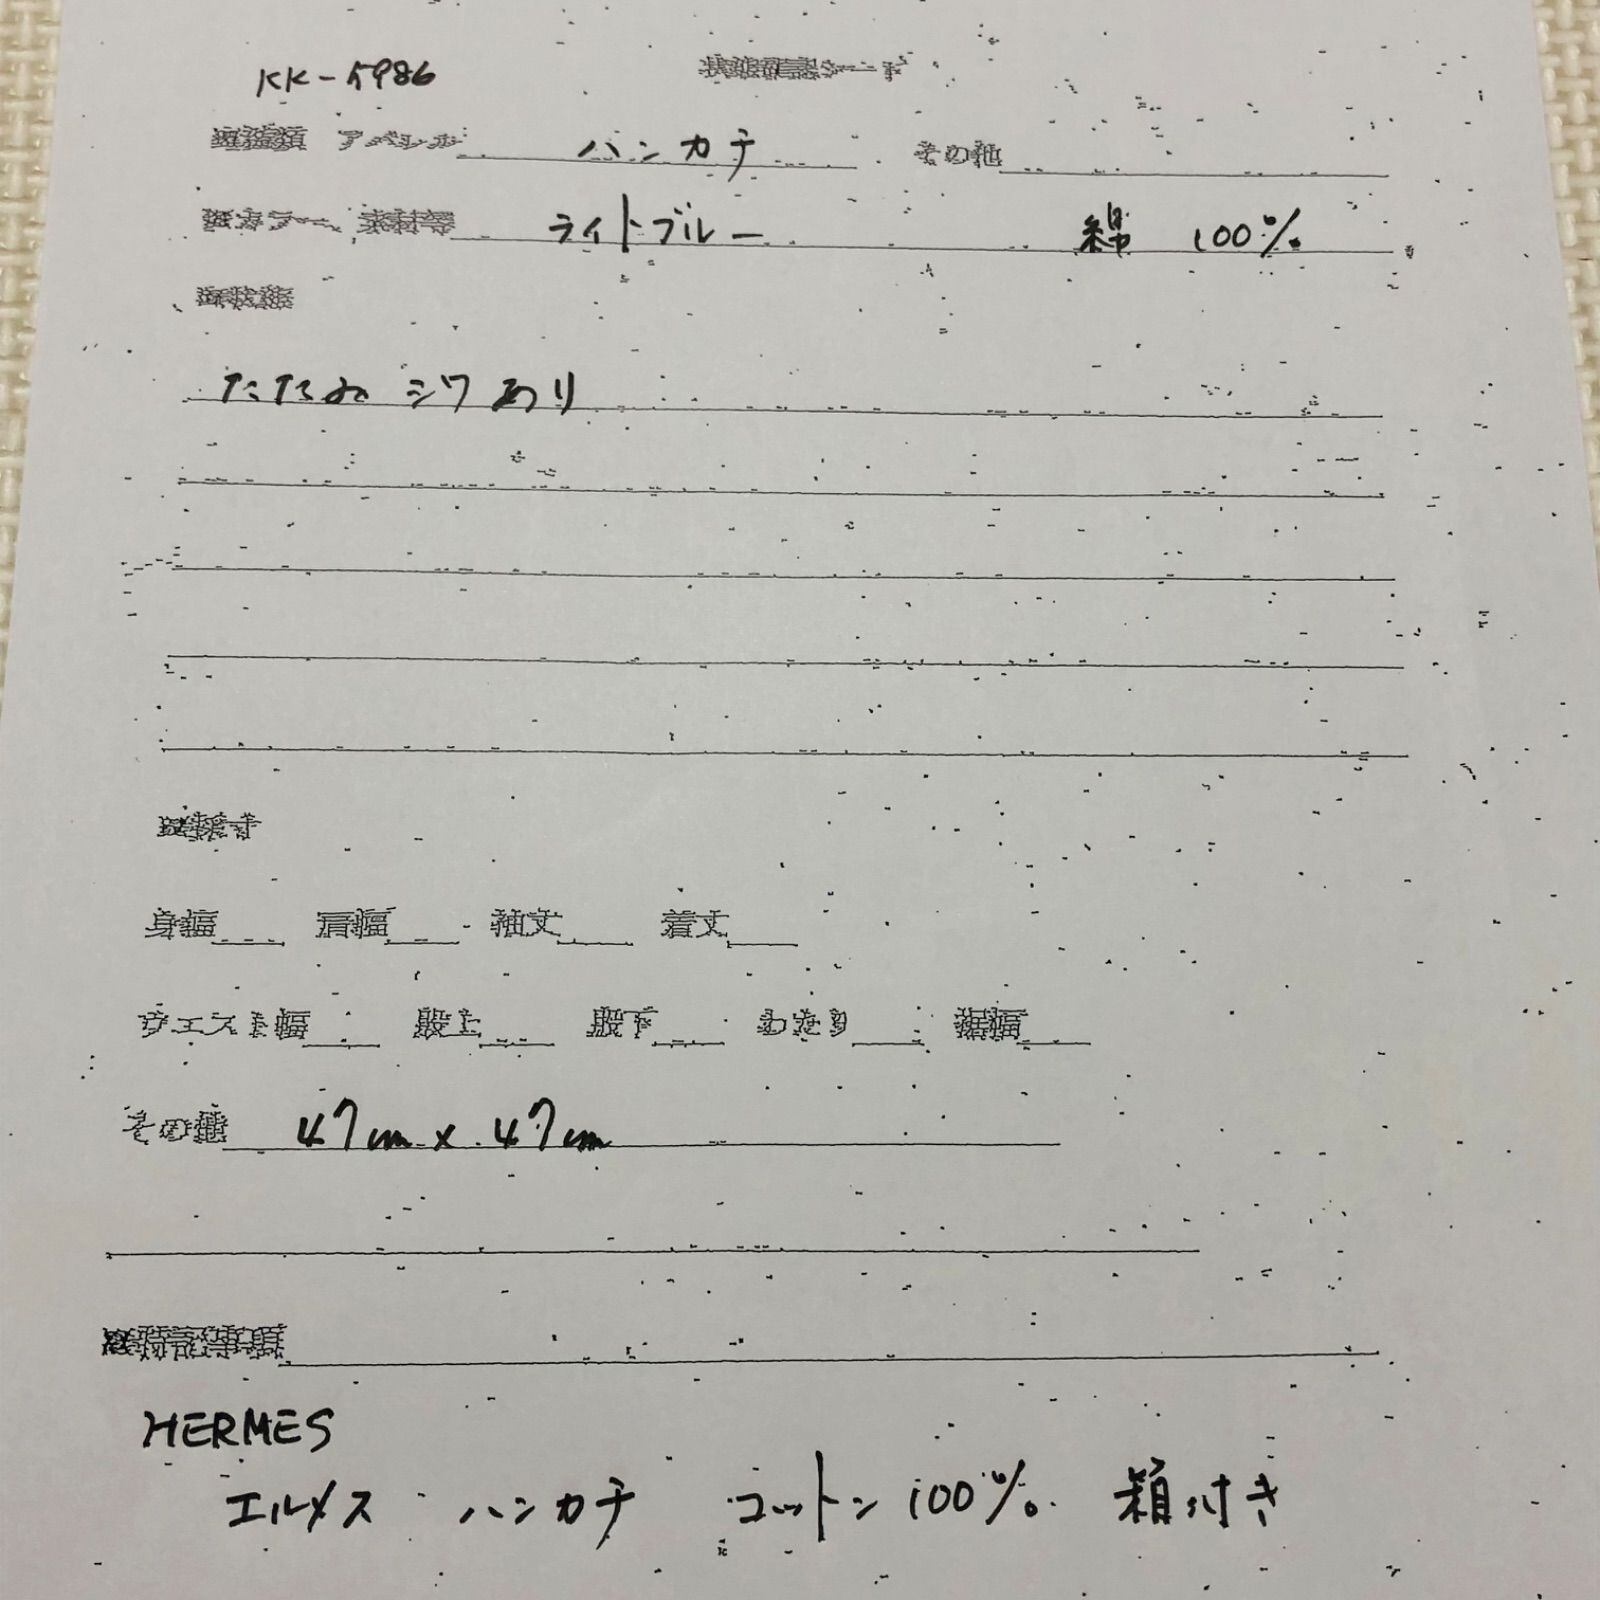 KK-5986 状態確認シート
アパレル ハンカチ その他
カラー、素材等 ライトブルー 綿 100%
たたみ シワ あり
採寸
身幅 肩幅 袖丈 着丈
ウエスト幅 股上 股下 わたり 裾幅
その他 47cm x 47cm
特記事項
HERMES
エルメス ハンカチ コットン 100% 箱付き